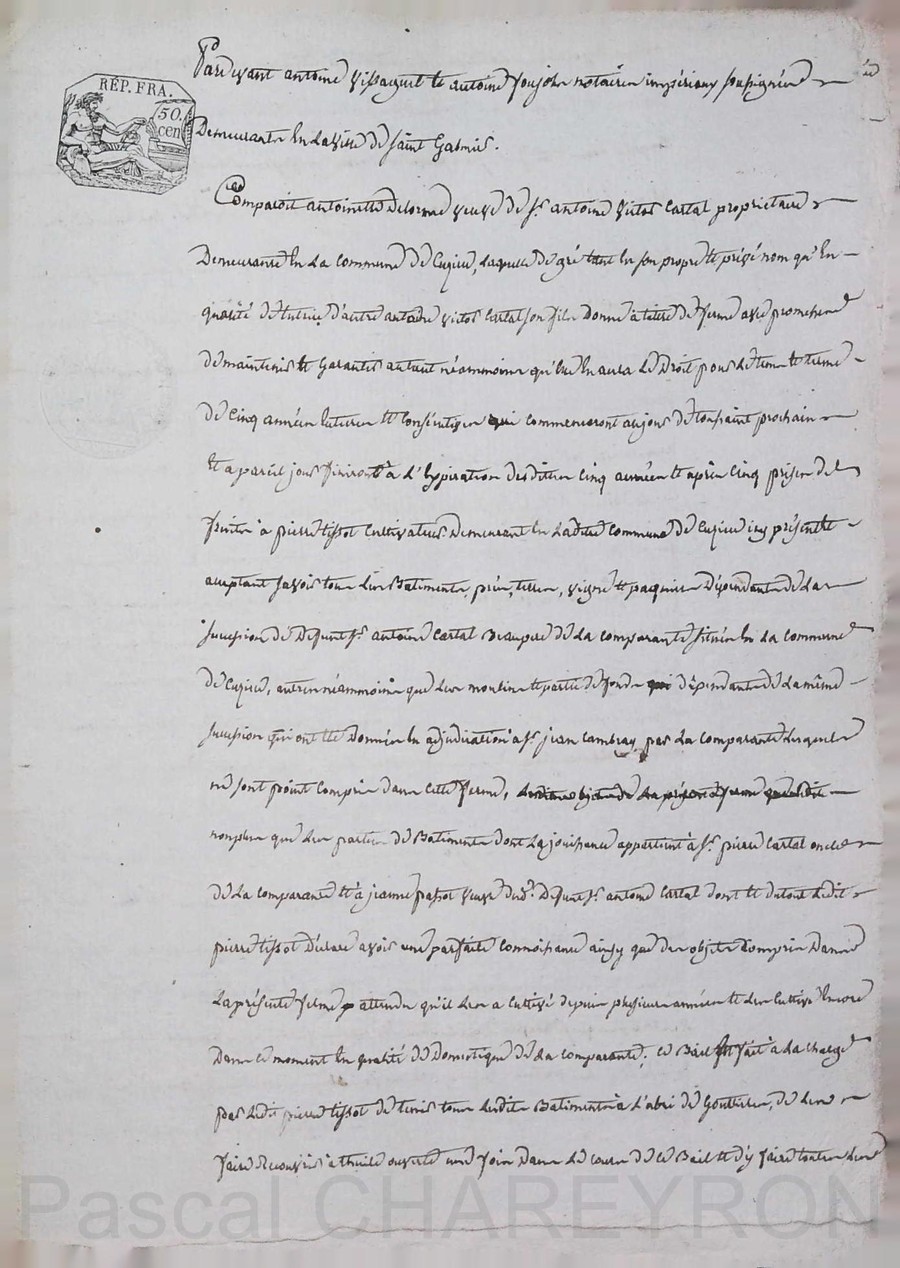 RÉP. FRA.
50.
cen
Pardevant antoine et antoine notaires impériaux soussignés
Demeurants en la ville de Saint Galmier.
Comparoit antoinette Delorme veuve de Sr. antoine victor Cartal proprietaire
Demeurante en la commune de Cuzieu, laquelle de gré tant en son propre et privé nom qu'en
qualité de tutrice d'autre antoine victor Cartal son fils Donne à titre de ferme avec promesse
de maintenir et garantir autant néammoins qu'elle en aura le Droit pour le tems et terme
de Cinq années entieres et consécutives qui commenceront au jour de toussaint prochain
et a pareil jour finiront à l'expiration desdittes cinq années et après cinq prises de
fruits à pierre tissot Cultivateur Demeurant en laditte commune de Cuzieu icy présent et
acceptant savoir tous les Batiments, prés, terres, vigne et paquiers Dépendants de la
succession de Defunt Sr. antoine Cartal Beaupere de la comparante situés en la commune
de Cuzieu, autres néammoins que les moulins et partie de fonds dépendants de la même
succession qui ont été Donnés en adjudication à Sr. jean Cambray par la comparante lesquels
ne sont point compris dans cette ferme,
nonplus que les parties de Batiments dont la jouissance appartient à Sr. pierre Cartal oncle
de la comparante et à jeanne passot veuve dud. Defunt Sr. antoine Cartal dont et dutout ledit
pierre tissot Déclare avoir une parfaite connoissance ainsy que des objets Compris Dans
la présente ferme attendu qu'il les a cultivé depuis plusieurs années et les cultive encore
Dans ce moment en qualité de Domestique de la comparante; ce Bail fait à la charge
par ledit pierre tissot de tenir tous lesdits Batiments à l'abri de Gouttieres, de les
faire Recouvrir à thuile ouverte une fois Dans le cours de ce Bail et d'y faire toutes les
Pascal CHAREYRON